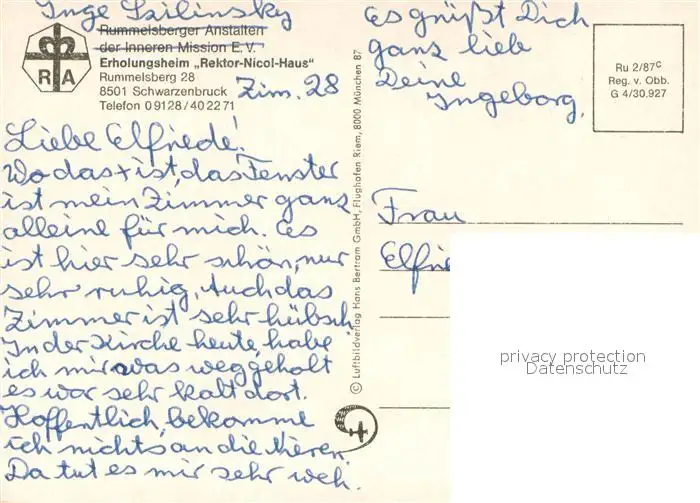 Inge Szilinsky
Rummelsberger Anstalten
der Inneren Mission E.V.
Erholungsheim „Rektor-Nicol-Haus"
Rummelsberg 28
8501 Schwarzenbruck
Telefon 0 91 28 / 40 22 71
Zim. 28
R A
Liebe Elfriede!
Wo das + ist, das Fenster
ist mein Zimmer ganz
alleine für mich. Es
ist hier sehr schön, nur
sehr ruhig. Auch das
Zimmer ist sehr hübsch
In der Kirche heute, habe
ich mir was weggeholt
es war sehr kalt dort.
Hoffentlich, bekomme
ich nichts an die Nieren
Da tut es mir sehr weh.
© Luftbildverlag Hans Bertram GmbH, Flughafen Riem, 8000 München 87
Es grüßt Dich
ganz lieb
Deine
Ingeborg.
Ru 2/87c
Reg. v. Obb.
G 4/30.927
Frau
Elfrie
privacy protection
Datenschutz